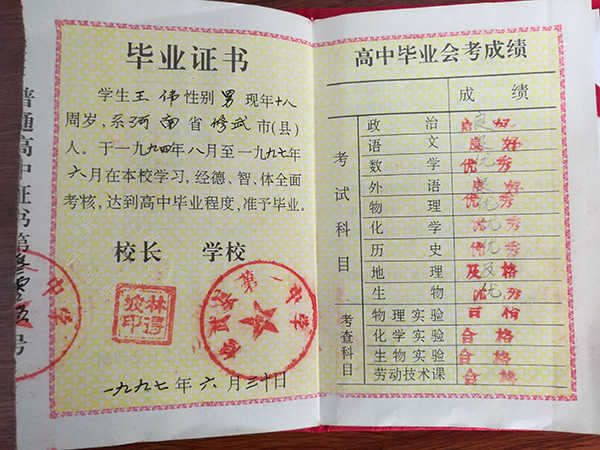 毕业证书
学生王伟性别男现年十八
周岁，系河南省修武市(县)
人。于一九九四年八月至一九九七年
六月在本校学习，经德、智、体全面
考核，达到高中毕业程度，准予毕业。
校长 学校
林
印
修武县第一中学
一九九七年六月三十日
普通高中证书第 号
中学
高中毕业会考成绩
成绩
考试科目
政治 良好
语文 良好
数学 优秀
外语 良好
物理 优秀
化学 优秀
历史 优秀
地理 及格
生物 优秀
考查科目
物理实验 合格
化学实验 合格
生物实验 合格
劳动技术课 合格